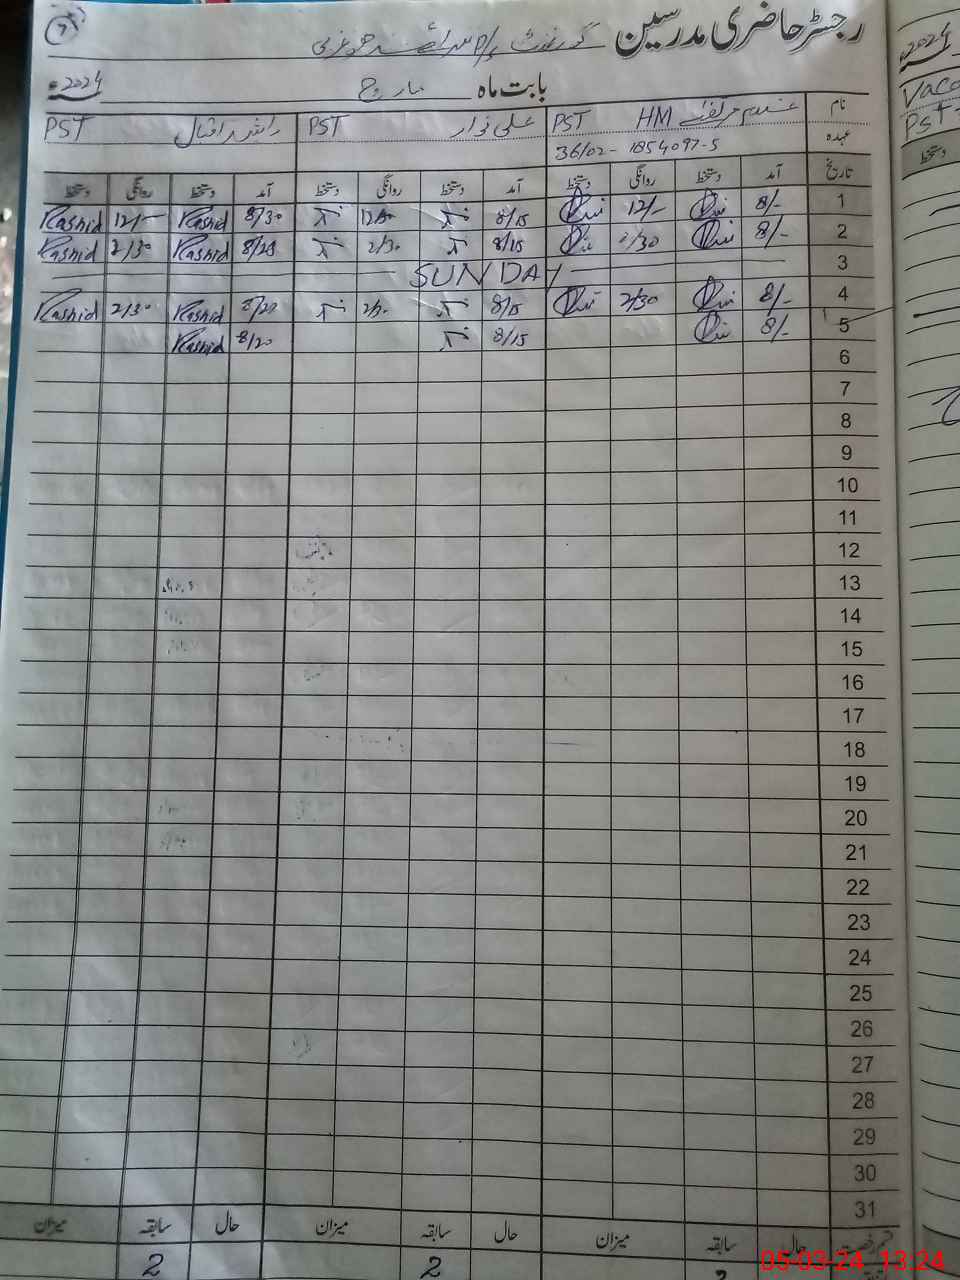 رجسٹر حاضری مدرسین گورنمنٹ
بابت ماہ مارچ 2024ء
نام HM PST علی نواز PST راشد اقبال PST
عہدہ 36102-1854097-5
تاریخ آمد دستخط روانگی دستخط آمد دستخط روانگی دستخط آمد دستخط روانگی دستخط
1 8/- 12/- 8/15 8/30 Rashid 12/- Rashid
2 8/- 2/30 8/15 2/30 Rashid 2/30 Rashid
3 SUNDAY
4 8/- 2/30 8/15 Rashid 2/30 Rashid
5 8/- 8/15 8/20 Rashid
6
7
8
9
10
11
12
13
14
15
16
17
18
19
20
21
22
23
24
25
26
27
28
29
30
31
قسم رخصت حال سابقہ میزان حال سابقہ میزان حال سابقہ میزان
2 2
2024ء
Vaca
PST
دستخط
05-03-24 13:24